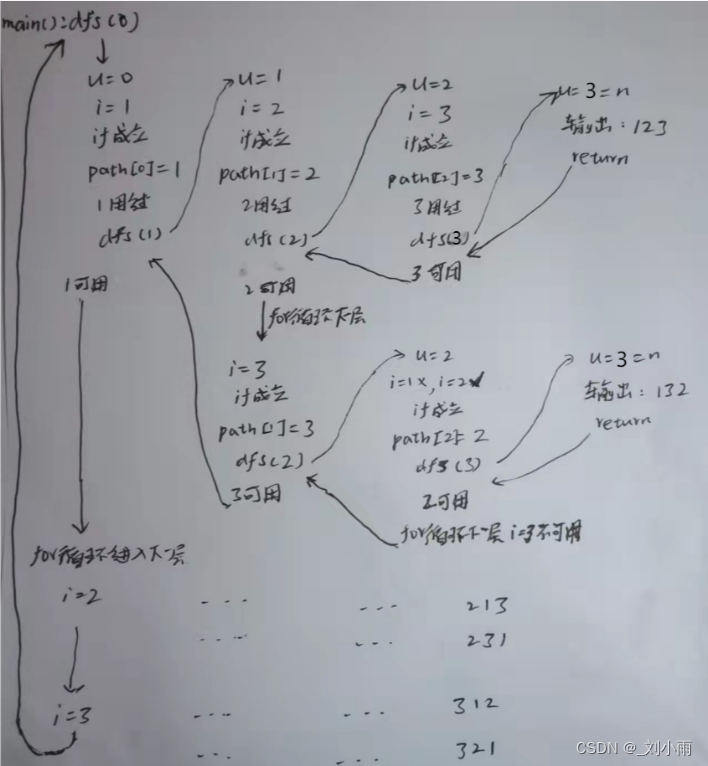 main():dfs(0)
u=0
i=1
if成立
path[0]=1
1用过
dfs(1)
1可用
u=1
i=2
if成立
path[1]=2
2用过
dfs(2)
2可用
for循环下层
u=2
i=3
if成立
path[2]=3
3用过
dfs(3)
3可用
u=3=n
输出:123
return
i=3
if成立
path[1]=3
dfs(2)
3可用
u=2
i=1×,i=2✓
if成立
path[2]=2
dfs(3)
2可用
for循环下一层 i=3不可用
u=3=n
输出:132
return
for循环进入下一层
i=2 --- --- 213
--- --- 231
i=3 --- --- 312
--- --- 321
CSDN @_刘小雨